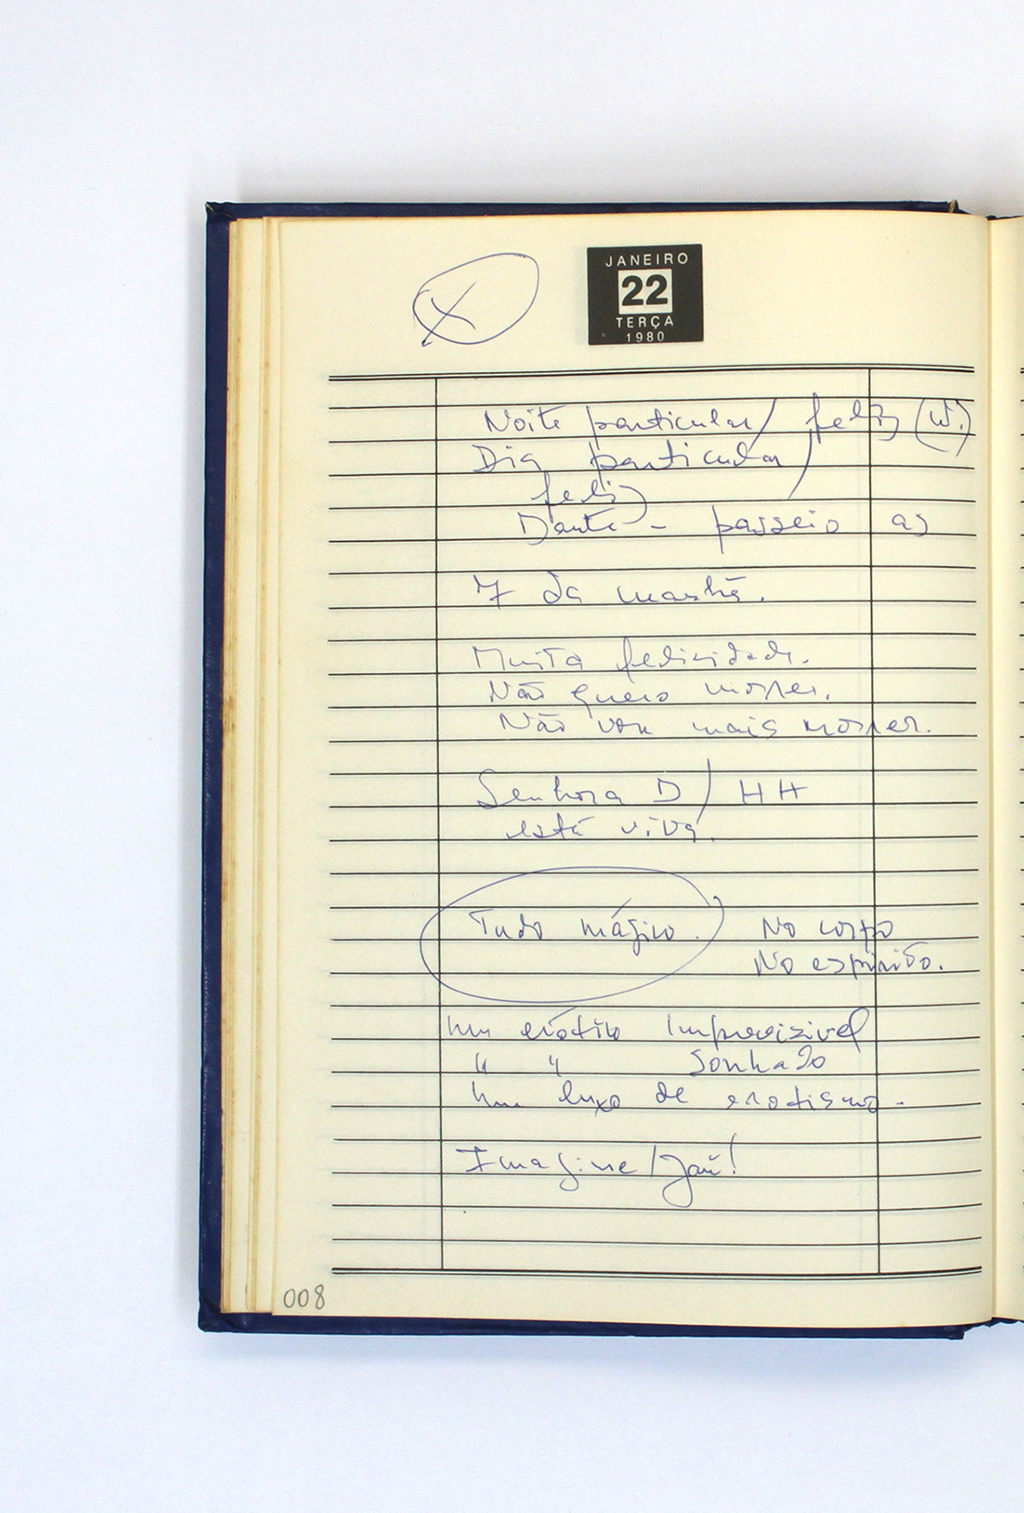 X
JANEIRO
22
TERÇA
1980
Noite particular / feliz (W.)
Dia particular /
feliz
Dante - passeio as
7 da manhã.
Muita felicidade.
Não quero morrer.
Não vou mais morrer.
Senhora D / HH
está viva.
Tudo mágico. No corpo
No espírito.
Um erótico imprevizivel
" " sonhado
Um luxo de erotismo.
Imagine /
008